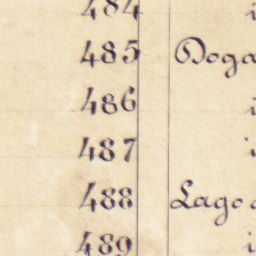 484 i
485 Doga
486 i
487 i
488 Lago
489 i